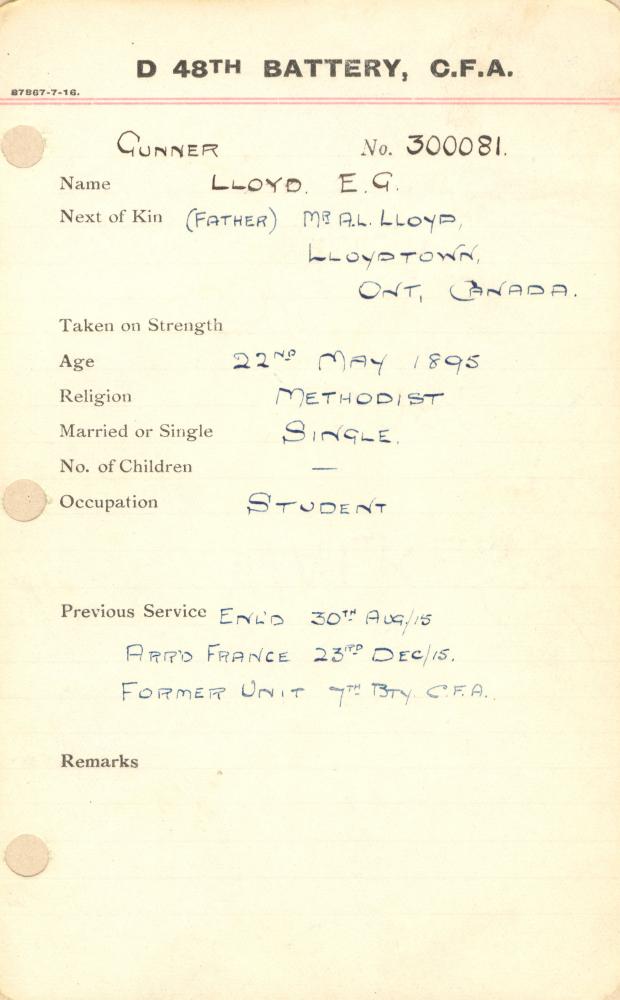 D 48TH BATTERY, C.F.A.
87867-7-16.
GUNNER No. 300081.
Name LLOYD. E.G.
Next of Kin (FATHER) MR A.L. LLOYD,
LLOYDTOWN,
ONT, CANADA.
Taken on Strength
Age 22ND MAY 1895
Religion METHODIST
Married or Single SINGLE.
No. of Children —
Occupation STUDENT
Previous Service ENL'D 30TH AUG/15
ARR'D FRANCE 23RD DEC/15.
FORMER UNIT 7TH BTY. C.F.A.
Remarks